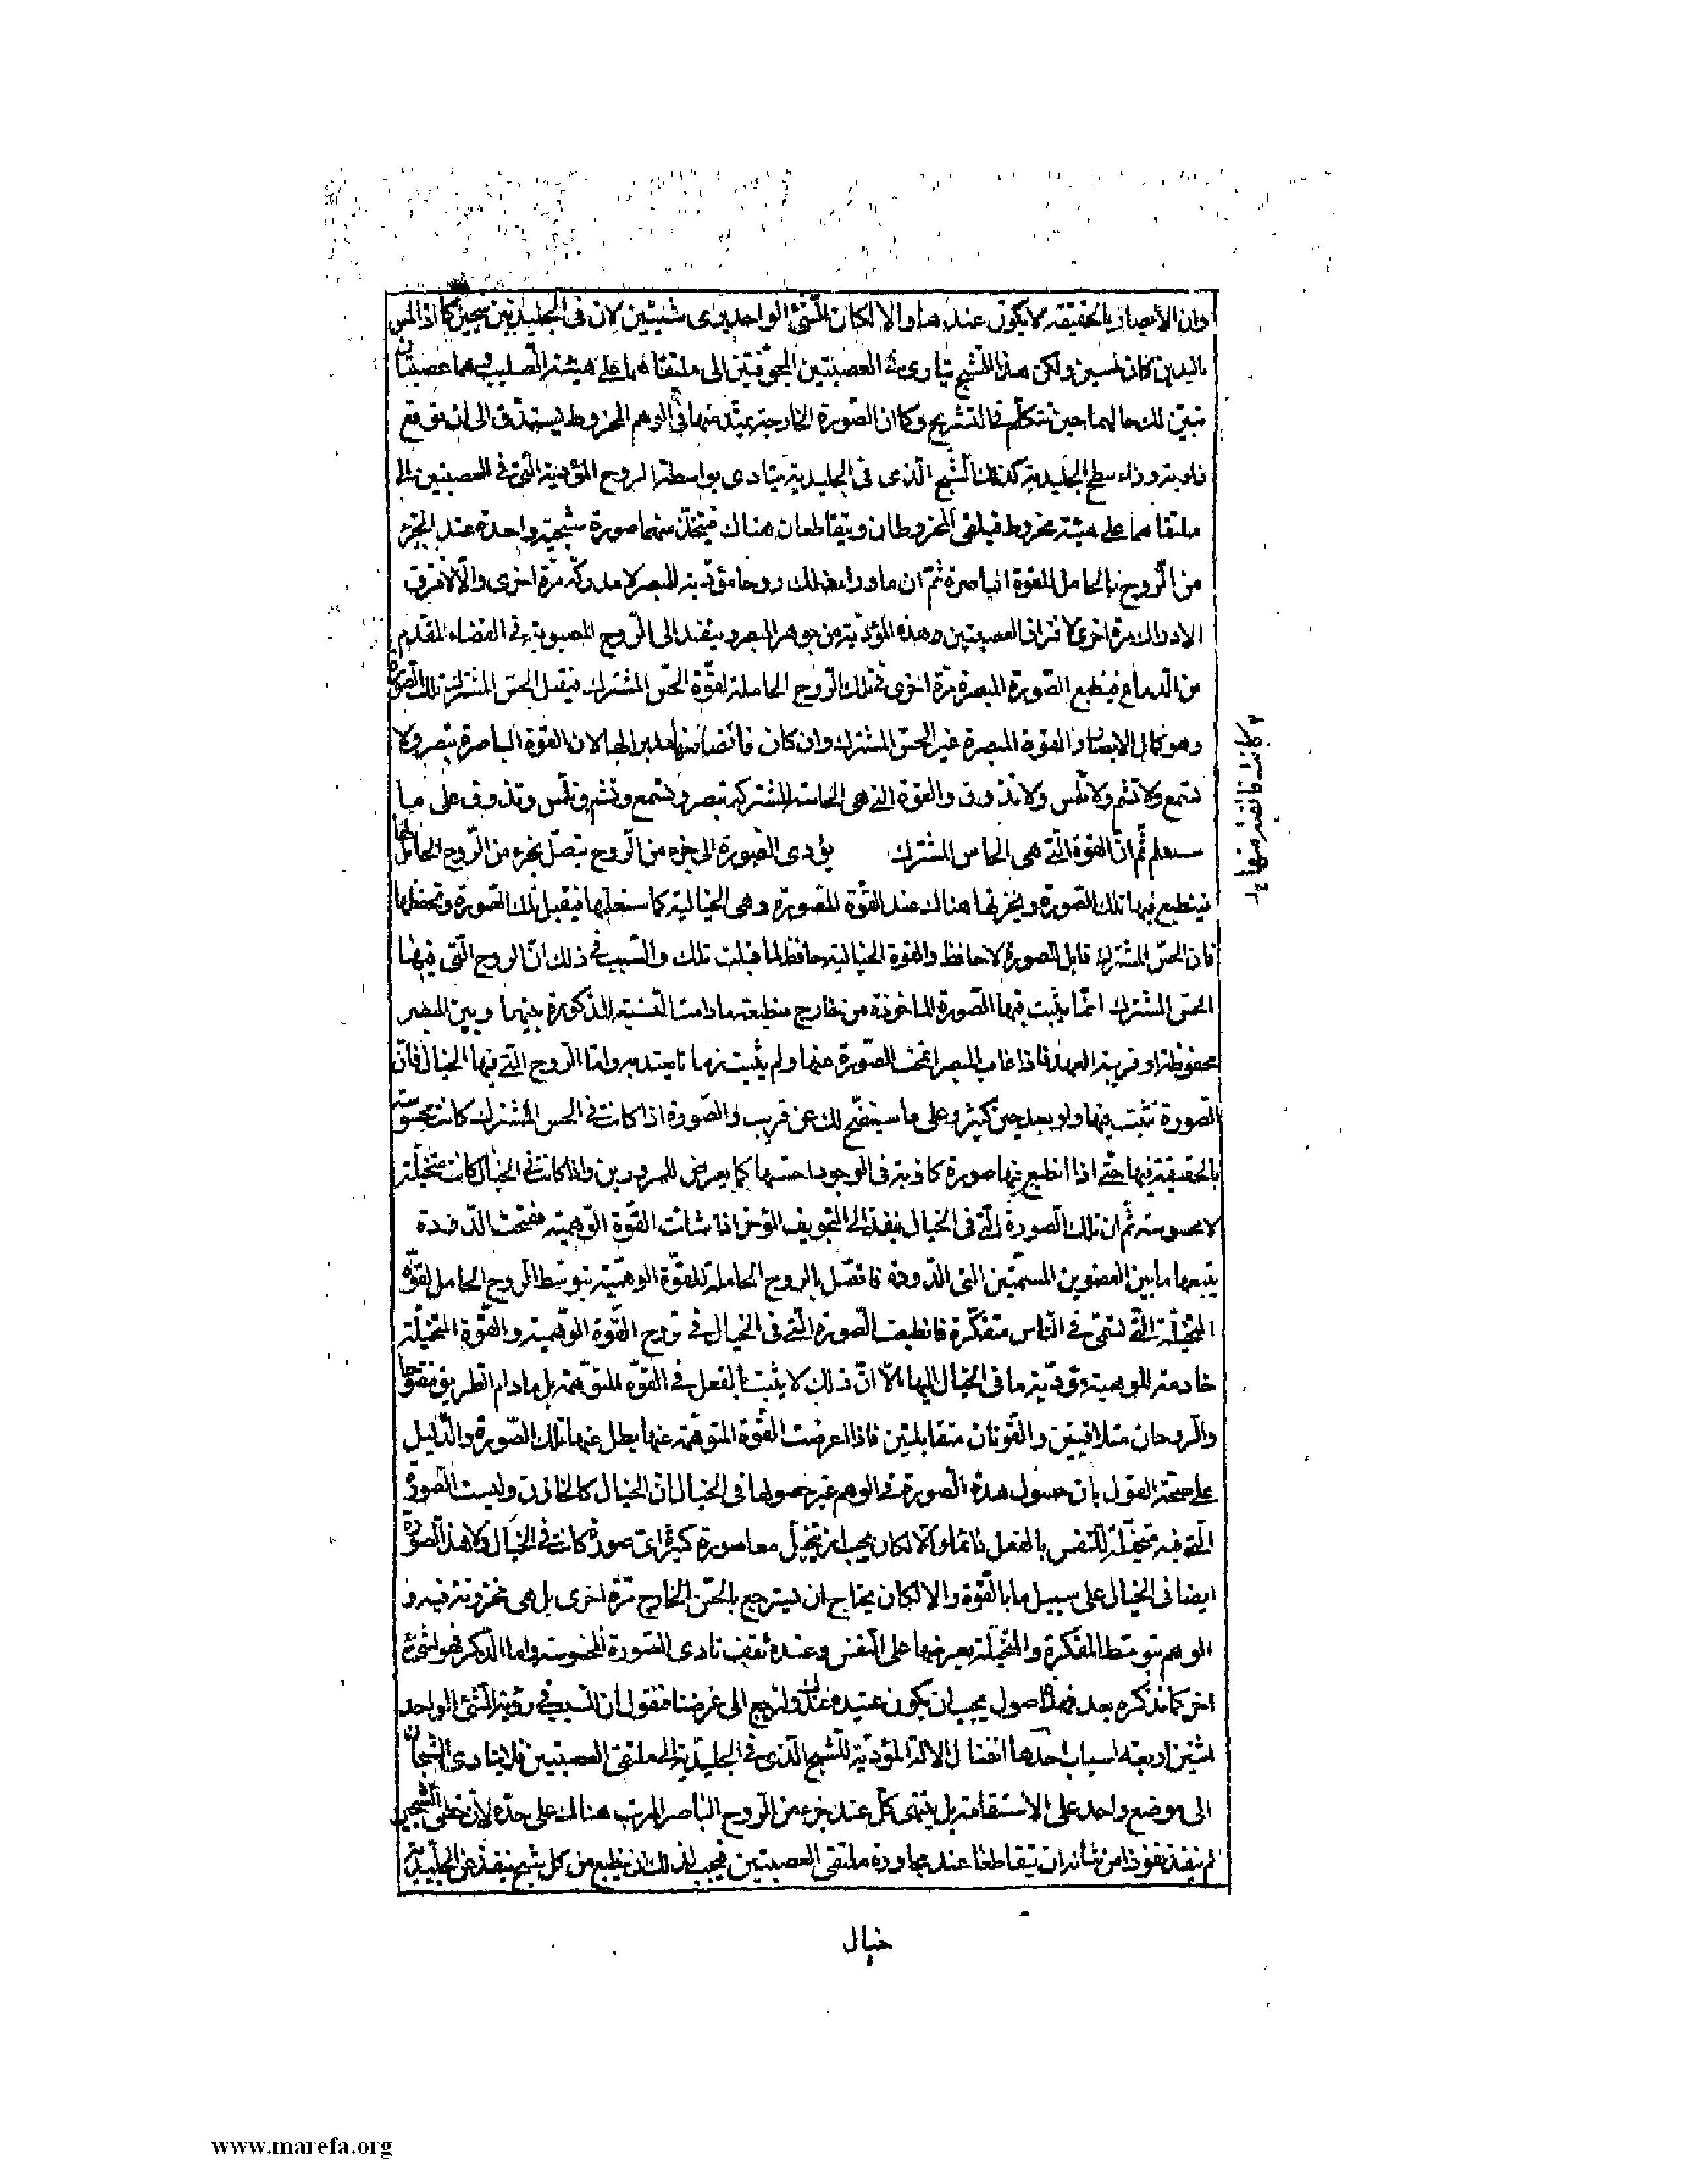 وان الأبصار بالحقيقة لا يكون عندها والا لكان الشئ الواحد يرى شيئين لان فى الجليديتين شبحين كما اذا لمس
باليدين كان لمسين ولكن هذا الشبح يتادى فى العصبتين المجوفتين الى ملتقاهما على هيئة الصليب وهما عصبتان
نبين لك حالهما حين نتكلم فى التشريح وكما ان الصورة الخارجة يمتد منها فى الوهم المخروط يستدق الى ان يوقع
زاويته وراء سطح الجليدية كذلك الشبح الذى فى الجليدية يتادى بواسطة الروح المؤدية التى فى العصبتين الى
ملتقاهما على هيئة مخروط فيلقى المخروطان ويتقاطعان هناك فيتخذ منهما صورة شبحية واحدة عند الجزء
من الروح الحامل للقوة الباصرة ثم ان ما وراء ذلك روحا مؤدية للبصر لا مدركة مرة اخرى والا لافترق
الادراك مرة اخرى لافتراق العصبتين وهذه المؤدية من جوهر المبصر وينفذ الى الروح المصبوبة فى الفضاء المقدم
من الدماغ فينطبع الصورة المبصرة مرة اخرى فى تلك الروح الحاملة لقوة الحس المشترك فيقبل الحس المشترك تلك الصورة
وهو كمال الابصار والقوة المبصرة غير الحس المشترك وان كان فائضا منها مدبرا لها لان القوة الباصرة تبصر ولا
تسمع ولا تشم ولا تلمس ولا تذوق والقوة التى هى الحاسة المشتركة تبصر وتسمع وتشم وتلمس وتذوق على ما
ستعلم ثم ان القوة التى هى الحاس المشترك يؤدى الصورة الى جزء من الروح يتصل بجزء من الروح الحامل لها
فينطبع فيها تلك الصورة ويخزنها هناك عند القوة المصورة وهى الخيالية كما ستعلمها فيقبل تلك الصورة وتحفظها
فان الحس المشترك قابل للصورة لا حافظ والقوة الخيالية حافظة لما قبلت تلك والسبب فى ذلك ان الروح التى فيها
الحس المشترك انما يثبت فيها الصورة الماخوذة من خارج منطبعة ما دامت النسبة المذكورة بينها وبين المبصر
محفوظة او قريبة العهد فاذا غاب المبصر انمحت الصورة عنها ولم يثبت زمانا يعتد به واما الروح التى فيها الخيال فان
الصورة تثبت فيها ولو بعد حين كثير وعلى ما سيتضح لك عن قريب والصورة اذا كانت فى الحس المشترك كانت محسوسة
بالحقيقة فيها حتى اذا انطبع فيها صورة كاذبة فى الوجود احستها كما يعرض للممرورين واذا كانت فى الخيال كانت متخيلة
لا محسوسة ثم ان تلك الصورة التى فى الخيال ينفذ الى التجويف المؤخر اذا شائت القوة الوهمية ففتحت الدودة
بتبعيدها ما بين العضوين المسميين التى الدودة فاتصل بالروح الحاملة للقوة الوهمية بتوسط الروح الحامل لقوة
المتخيلة التى تسمى فى الناس متفكرة فانطبعت الصورة التى فى الخيال فى روح القوة الوهمية والقوة المتخيلة
خادمة للوهمية مؤدية ما فى الخيال اليها الا ان ذلك لا يثبت بالفعل فى القوة المتوهمة بل ما دام الطريق مفتوحا
والروحان متلاقيتين والقوتان متقابلتين فاذا اعرضت القوة المتوهمة عنها بطل عنها تلك الصورة والدليل
على صحة القول بان حصول هذه الصورة فى الوهم غير حصولها فى الخيال ان الخيال كالخازن وليست الصورة
التى فيه متخيلة للنفس بالفعل دائما والا لكان يجب ان يتخيل معا صورة كثيرة اى صورة كانت فى الخيال ولا هذه الصورة
ايضا فى الخيال على سبيل ما بالقوة والا لكان يحتاج ان يسترجع بالحس الخارج مرة اخرى بل هى مخزونة فيه و
الوهم بتوسط المفكرة والمتخيلة يعرضها على النفس وعنده يقف تادى الصورة المحسوسة واما الذكر فهو لشئ
اخر كما نذكره بعد فهذه اصول يجب ان يكون عتيدة عندك ولنرجع الى غرضنا فنقول ان السبب فى رؤية الشئ الواحد
اثنين اربعة اسباب احدها انفتال الالة المؤدية للشبح الذى فى الجليدية الى ملتقى العصبتين فلا يتادى الشبحان
الى موضع واحد على الاستقامة بل ينتهى كل عند جزء من الروح الباصر المرتب هناك على حدة لان خطى الشبحين
لم ينفذ نفوذا من شانه ان يتقاطعا عند مجاورة ملتقى العصبتين فيجب لذلك ان ينطبع من كل شبح ينفذ عن الجليدية
خيال
www.marefa.org